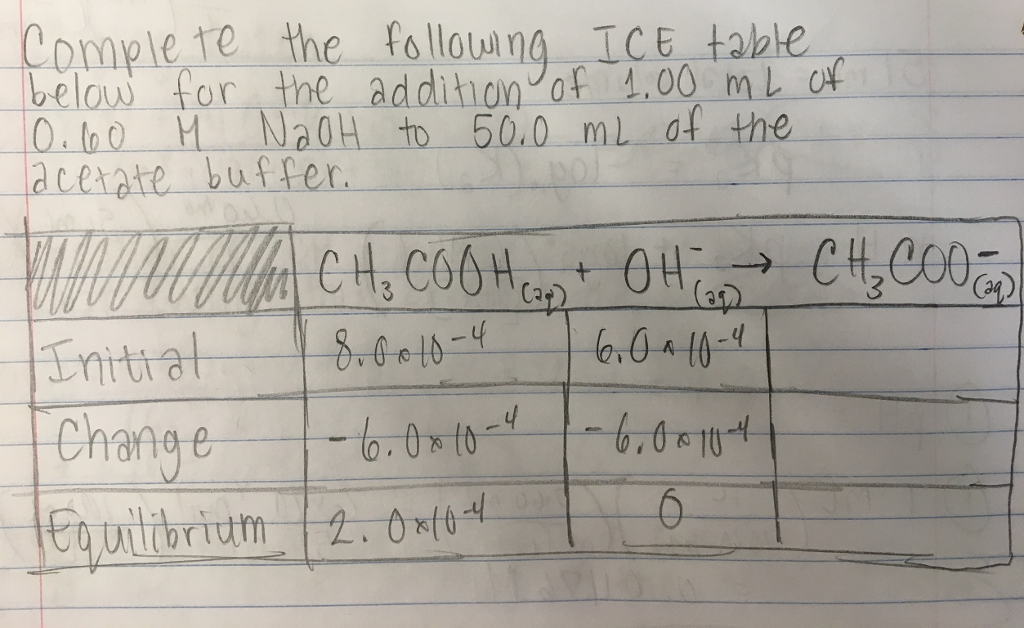 Complete the following ICE table
below for the addition of 1.00 mL of
0.60 M NaOH to 50.0 mL of the
acetate buffer.
CH₃COOH(aq) + OH⁻(aq) → CH₃COO⁻(aq)
Initial 8.0×10⁻⁴ 6.0×10⁻⁴
Change -6.0×10⁻⁴ -6.0×10⁻⁴
Equilibrium 2.0×10⁻⁴ 0